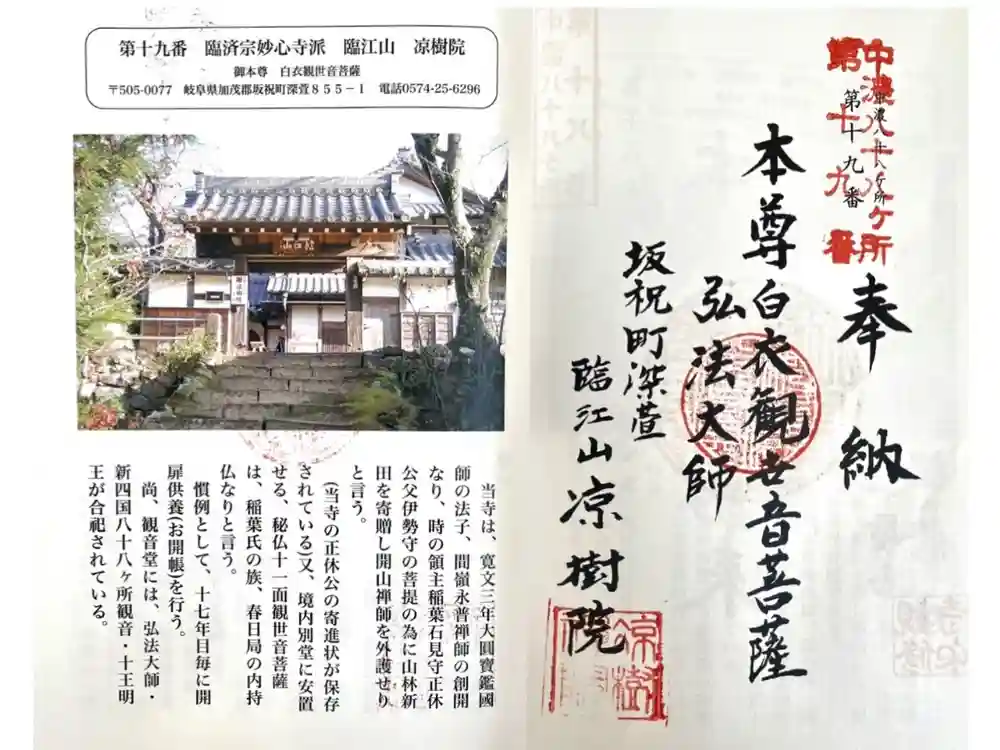 第十九番　臨済宗妙心寺派　臨江山　凉樹院
御本尊　白衣観世音菩薩
〒505-0077　岐阜県加茂郡坂祝町深萱８５５－１　電話0574-25-6296
当寺は、寛文三年大圓寶鑑國
師の法子、間嶺永普禅師の創開
なり、時の領主稲葉石見守正休
公父伊勢守の菩提の為に山林新
田を寄贈し開山禅師を外護せり
と言う。
(当寺の正休公の寄進状が保存
されている)又、境内別堂に安置
せる、秘仏十一面観世音菩薩
は、稲葉氏の族、春日局の内持
仏なりと言う。
慣例として、十七年目毎に開
扉供養(お開帳)を行う。
尚、観音堂には、弘法大師・
新四国八十八ヶ所観音・十王明
王が合祀されている。
中濃八十八ヶ所
第十九番
中濃八十八ヶ所
第十九番
奉納
本尊白衣觀世音菩薩
弘法大師
坂祝町深萱
臨江山凉樹院
凉樹